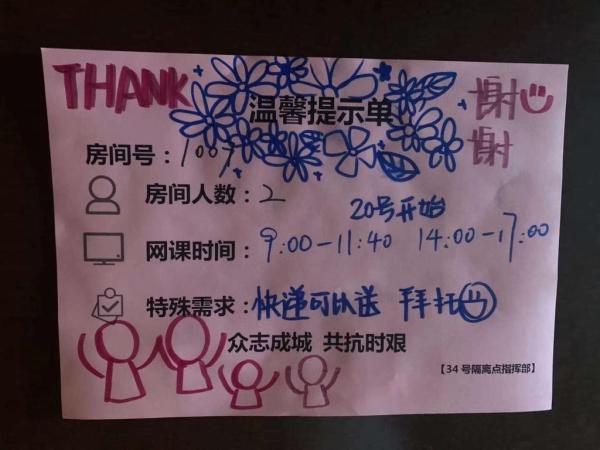 THANK
温馨提示单
谢谢
房间号：1007
房间人数：2
20号开始
网课时间：9:00-11:40 14:00-17:00
特殊需求：快递可以送 拜托
众志成城 共抗时艰
【34号隔离点指挥部】